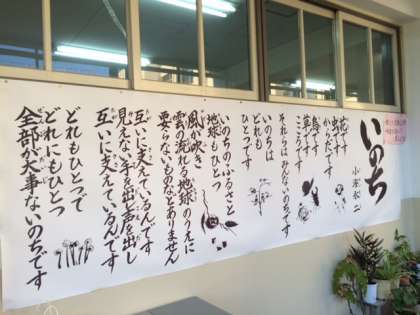 いのち
小海永二
花です
虫です
からだです
鳥です
草です
こころです
それらはみんないのちです
いのちは
どれも
ひとつです
いのちのふるさと
地球もひとつ
風が吹き
雲の流れる地球のうえに
要らないものなどありません
互いに支えているんです
見えない手を出し声を出し
互いに支えているんです
どれもひとつで
どれにもひとつ
全部が大事ないのちです